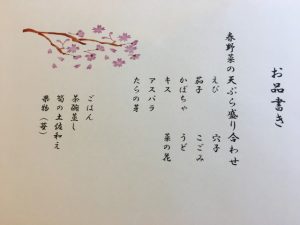 お品書き
春野菜の天ぷら盛り合わせ
えび　穴子
茄子　こごみ
かぼちゃ　うど
キス　菜の花
アスパラ
たらの芽
ごはん
茶碗蒸し
筍の土佐和え
果物（苺）